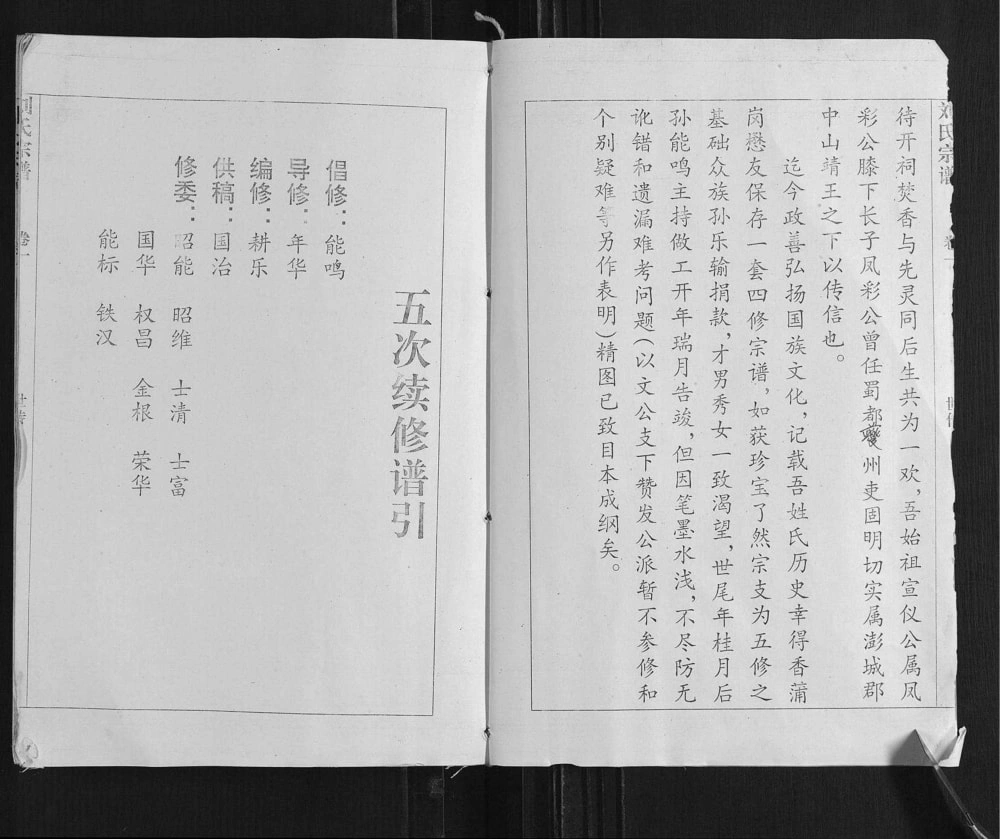 刘氏宗谱
卷一
世传
待开祠焚香与先灵同后生共为一欢，吾始祖宣仪公属凤
彩公膝下长子凤彩公曾任蜀都夔州吏固明切实属澎城郡
中山靖王之下以传信也。
迄今政善弘扬国族文化，记载吾姓氏历史幸得香蒲
岗懋友保存一套四修宗谱，如获珍宝了然宗支为五修之
基础众族孙乐输捐款，才男秀女一致渴望，世尾年桂月后
孙能鸣主持做工开年瑞月告竣，但因笔墨水浅，不尽防无
讹错和遗漏难考问题（以文公支下赞发公派暂不参修和
个别疑难等另作表明）精图已致目本成纲矣。
五次续修谱引
倡修：能鸣
导修：年华
编修：耕乐
供稿：国治
修委：昭能 昭维 士清 士富
国华 权昌 金根 荣华
能标 铁汉
刘氏宗谱
卷一